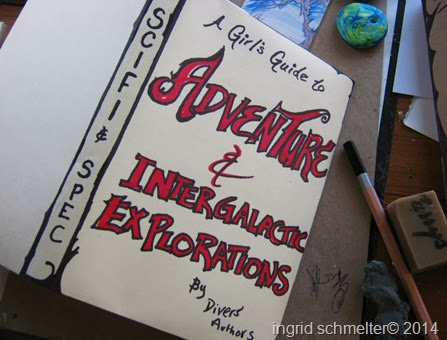 SCIFI & SPEC
A Girl's Guide to
ADVENTURE
&
INTERGALACTIC
EXPLORATIONS
By
Divers
Authors
ingrid schmelter© 2014